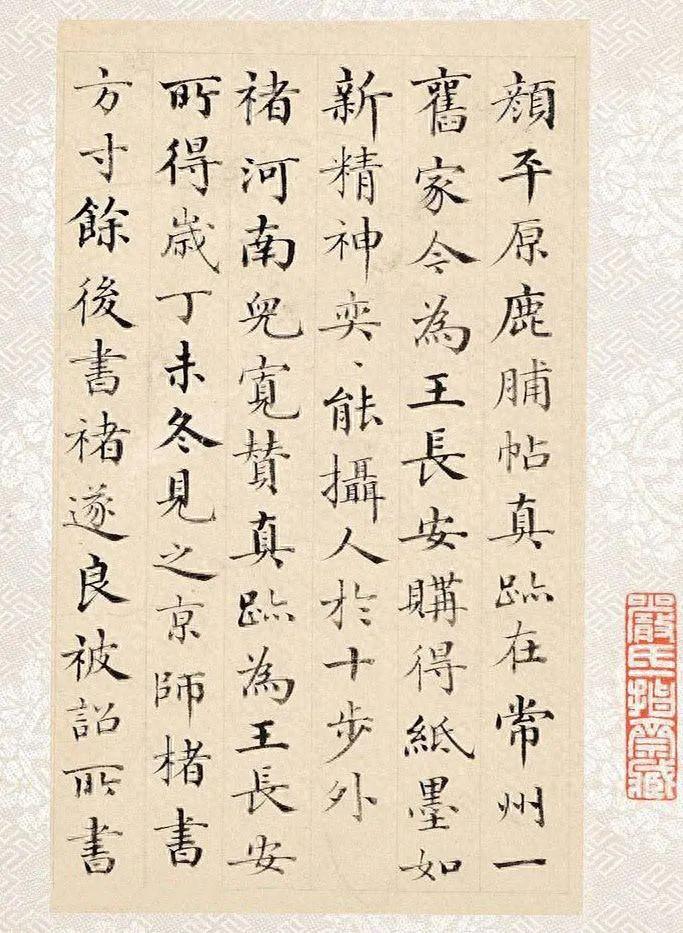 顔平原鹿脯帖真跡在常州一
舊家今為王長安購得紙墨如
新精神奕、能攝人於十步外
褚河南兒寛賛真跡為王長安
所得歳丁未冬見之京師楮書
方寸餘後書褚遂良被詔所書
嚴氏𢰅齋藏